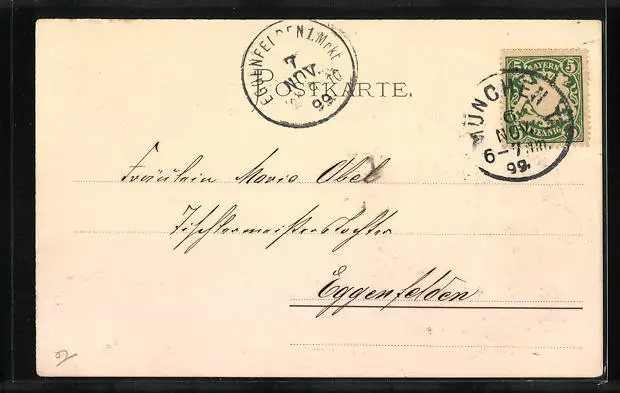 EGGENFELDEN 1. Mrkt
7
NOV.
99
POSTKARTE.
5 BAYERN 5
PFENNIG
MÜNCHEN
6
NOV
6-7 NM.
99
Fräulein Maria Obel
Tischlermeisterstochter
Eggenfelden